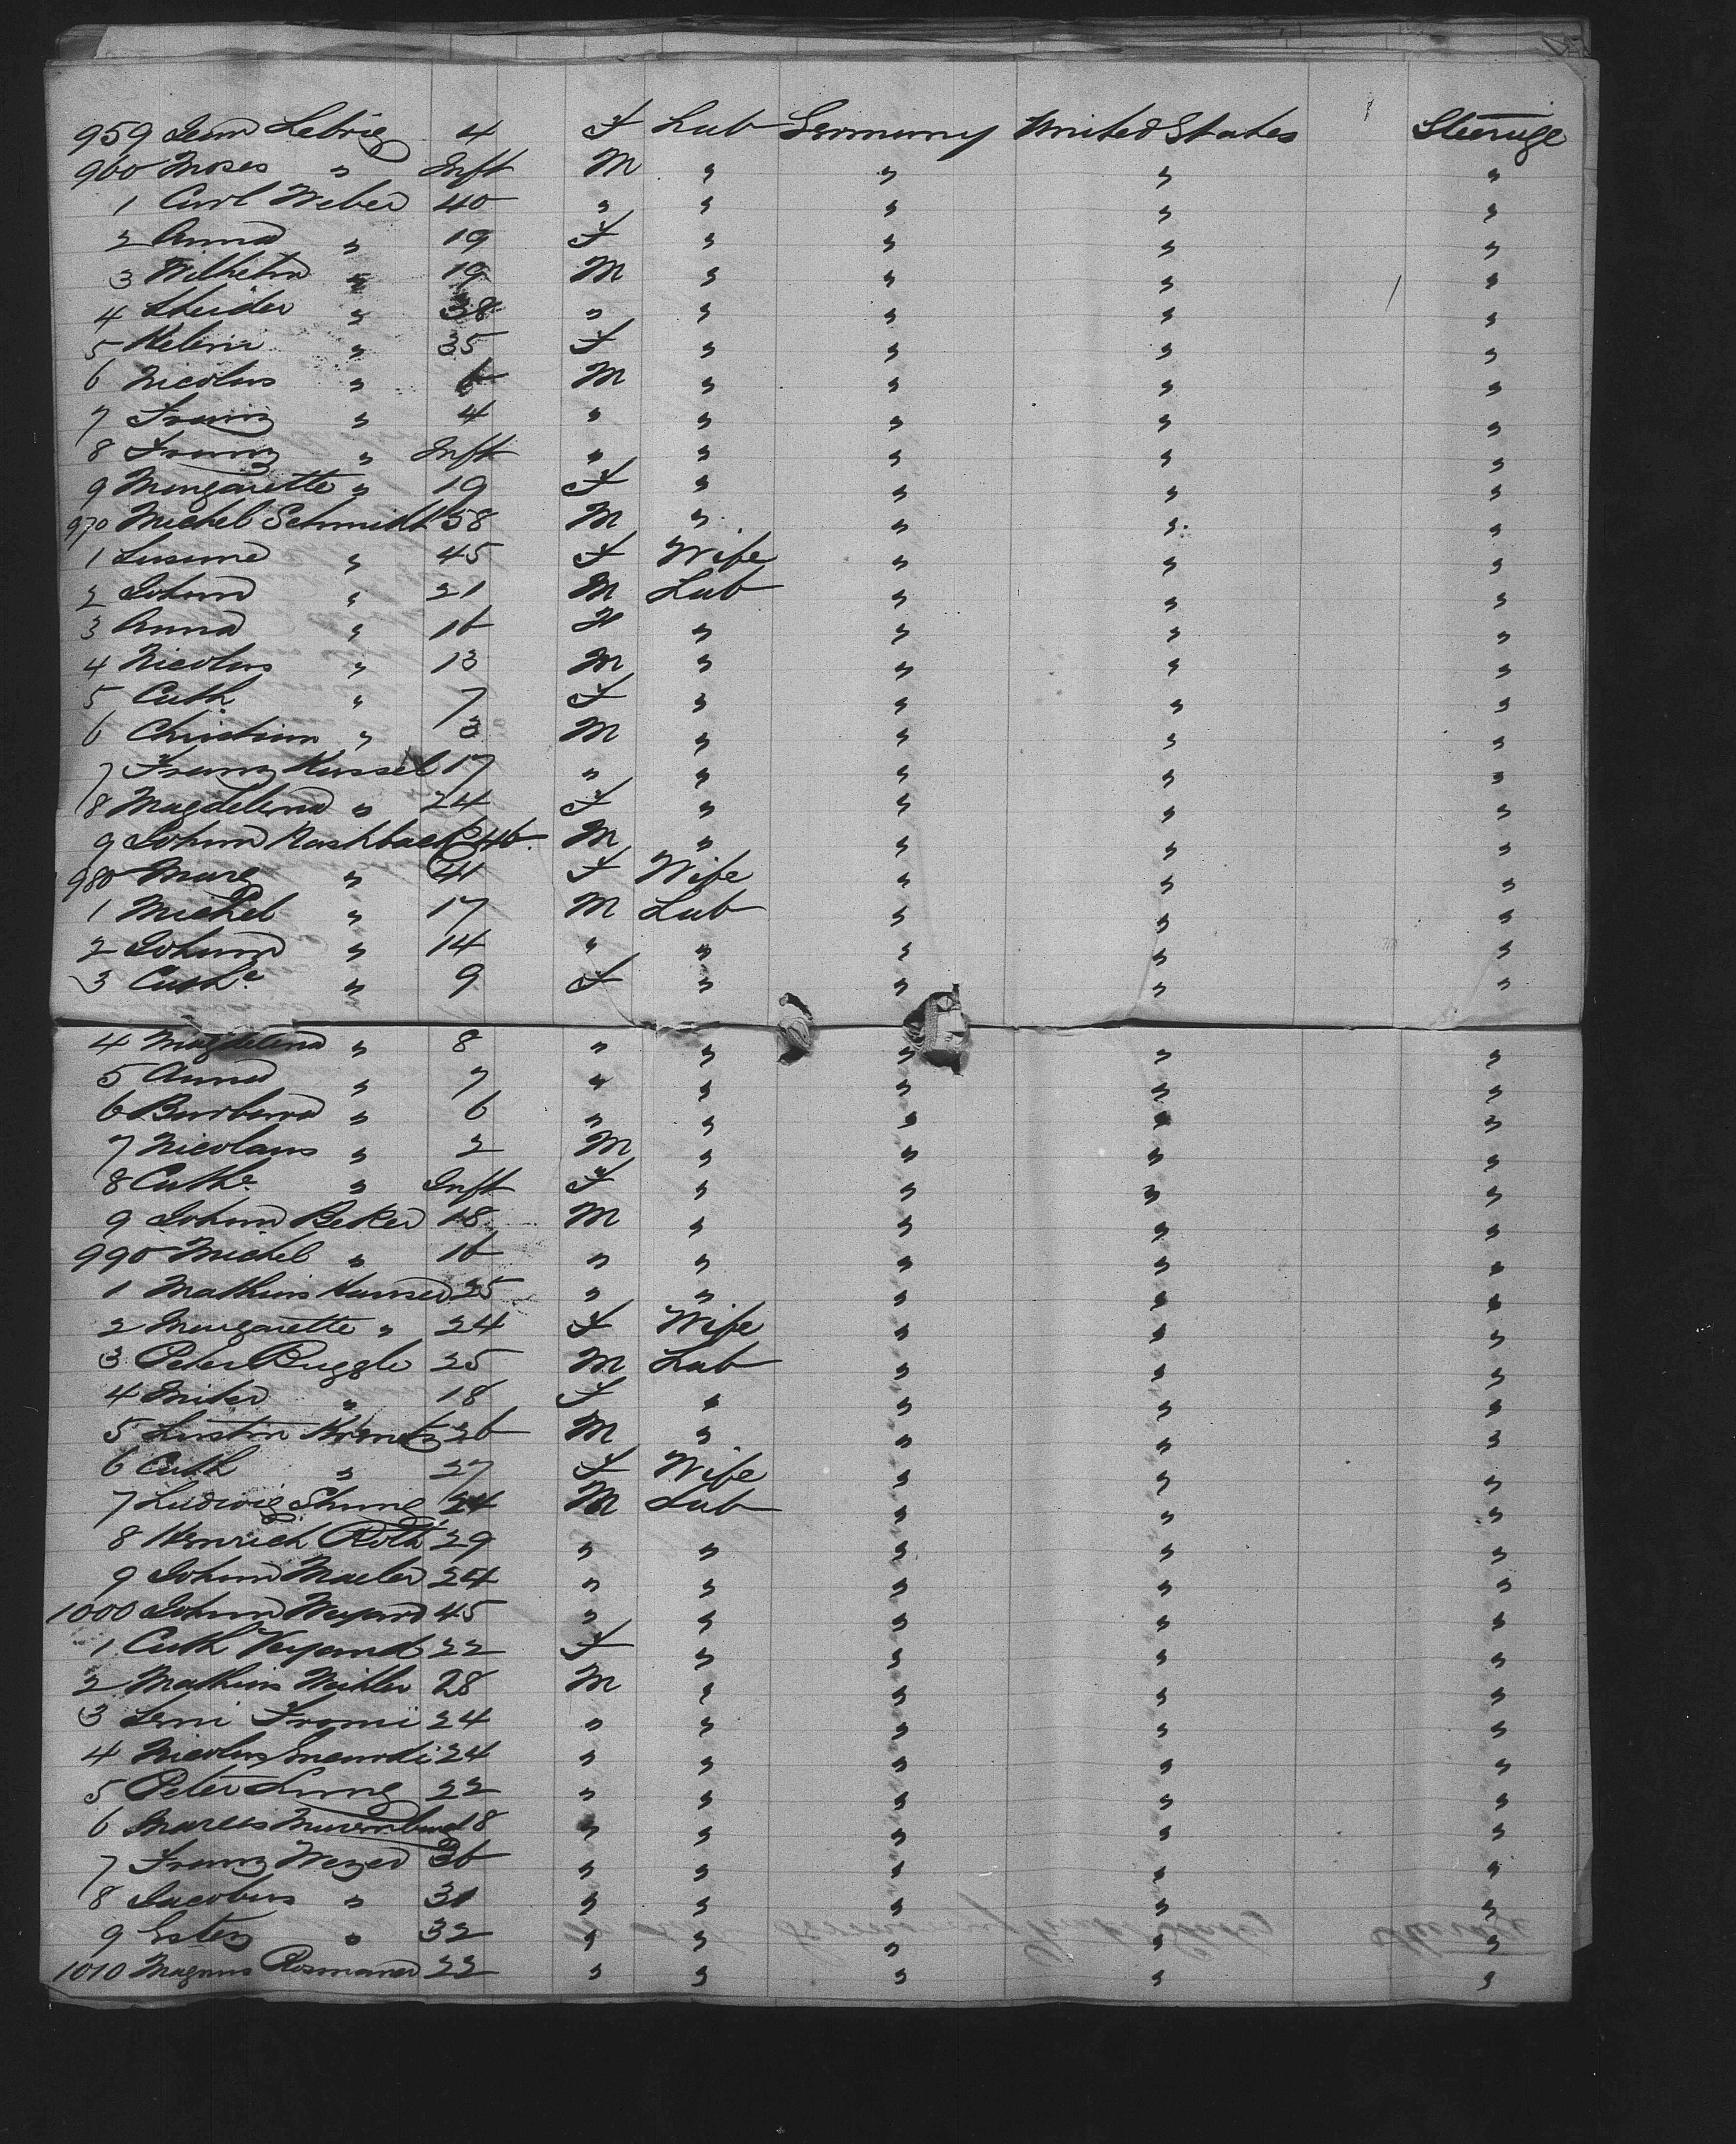 959 Lebrig 4 F Lab Germany United States Steerage
960 Moses " Inft M " " " "
1 Carl Weber 40 " " " " "
2 Anna " 19 F " " " "
3 Wilhelm " 19 M " " " "
4 " 38 " " " " "
5 Helena " 35 F " " " "
6 Nicolas " 6 M " " " "
7 Franz " 4 " " " " "
8 Franz " Inft " " " " "
9 Margarette " 19 F " " " "
970 Michel Schmidt 58 M " " " "
1 " 45 F Wife " " "
2 Johann " 21 M Lab " " "
3 Anna " 16 F " " " "
4 Nicolas " 13 M " " " "
5 Cath " 7 F " " " "
6 Christian " 3 M " " " "
7 Franz Kassel 17 " " " " "
8 Magdelena " 24 F " " " "
9 Johann Rashback 46 M " " " "
980 Marg " 41 F Wife " " "
1 Michel " 17 M Lab " " "
2 Johann " 14 " " " " "
3 Cathe " 9 F " " " "
4 Magdelena " 8 " " " " "
5 Anna " 7 " " " " "
6 Barbara " 6 " " " " "
7 Nicolaus " 2 M " " " "
8 Cathe " Inft F " " " "
9 Johann Beker 18 M " " " "
990 Michel " 16 " " " " "
1 Mathias 25 " " " " "
2 Margarette " 24 F Wife " " "
3 Peter Buggle 25 M Lab " " "
4 " 18 F " " " "
5 26 M " " " "
6 Cath " 27 F Wife " " "
7 Ludwig 24 M Lab " " "
8 Henrich Roth 29 " " " " "
9 Johann Maeler 24 " " " " "
1000 Johann Weyand 45 " " " " "
1 Cath Weyand 22 F " " " "
2 Mathias 28 M " " " "
3 24 " " " " "
4 Nicolas 24 " " " " "
5 Peter Lang 22 " " " " "
6 Marcus 18 " " " " "
7 Franz 36 " " " " "
8 Jacobus " 31 " " " " "
9 Ester " 32 " " " " "
1010 Magnus 22 " " " " "